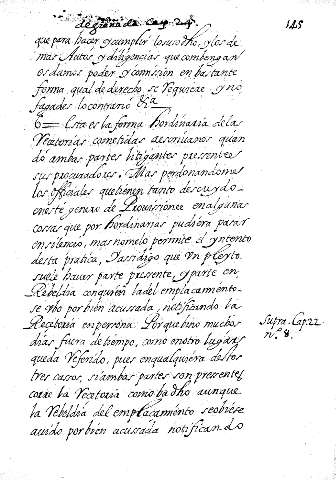 de granada Cap. 24.
145
que para hazer, y cumplir lo suso dho, y los de
mas Autos, y diligencias que combengan
os damos poder, y comision en bastante
forma, qual de derecho se requiere, y no
fagades lo contrario &a
6= Esta es la forma hordinaria de las
Receptorias cometidas a escrivanos, quan
do ambas partes litigantes presentes
sus procuradores. Mas perdonandome
los officiales que tienen tanto descuydo
en este genero de Provisiones en algunas
cosas que por hordinarias pudiera pasar
en silencio, mas no me lo permite el yntento
desta pratica, Y assi digo que Vn pleyto
suele hauer parte presente, y parte en
Rebeldia con quien la del emplacamiento
se vbo por bien acussada, notificando la
Recetoria en persona. Porque vino muchos
dias fuera de tiempo, como en otro lugar
queda Referido, pues en qualquiera destos
tres casos, si ambas partes son presentes
corre la Recetoria como ba dho aunque
la Rebeldia del emplacamiento se obiese
auido por bien acussada notificando
Supra. Cap. 22
n.º 8,